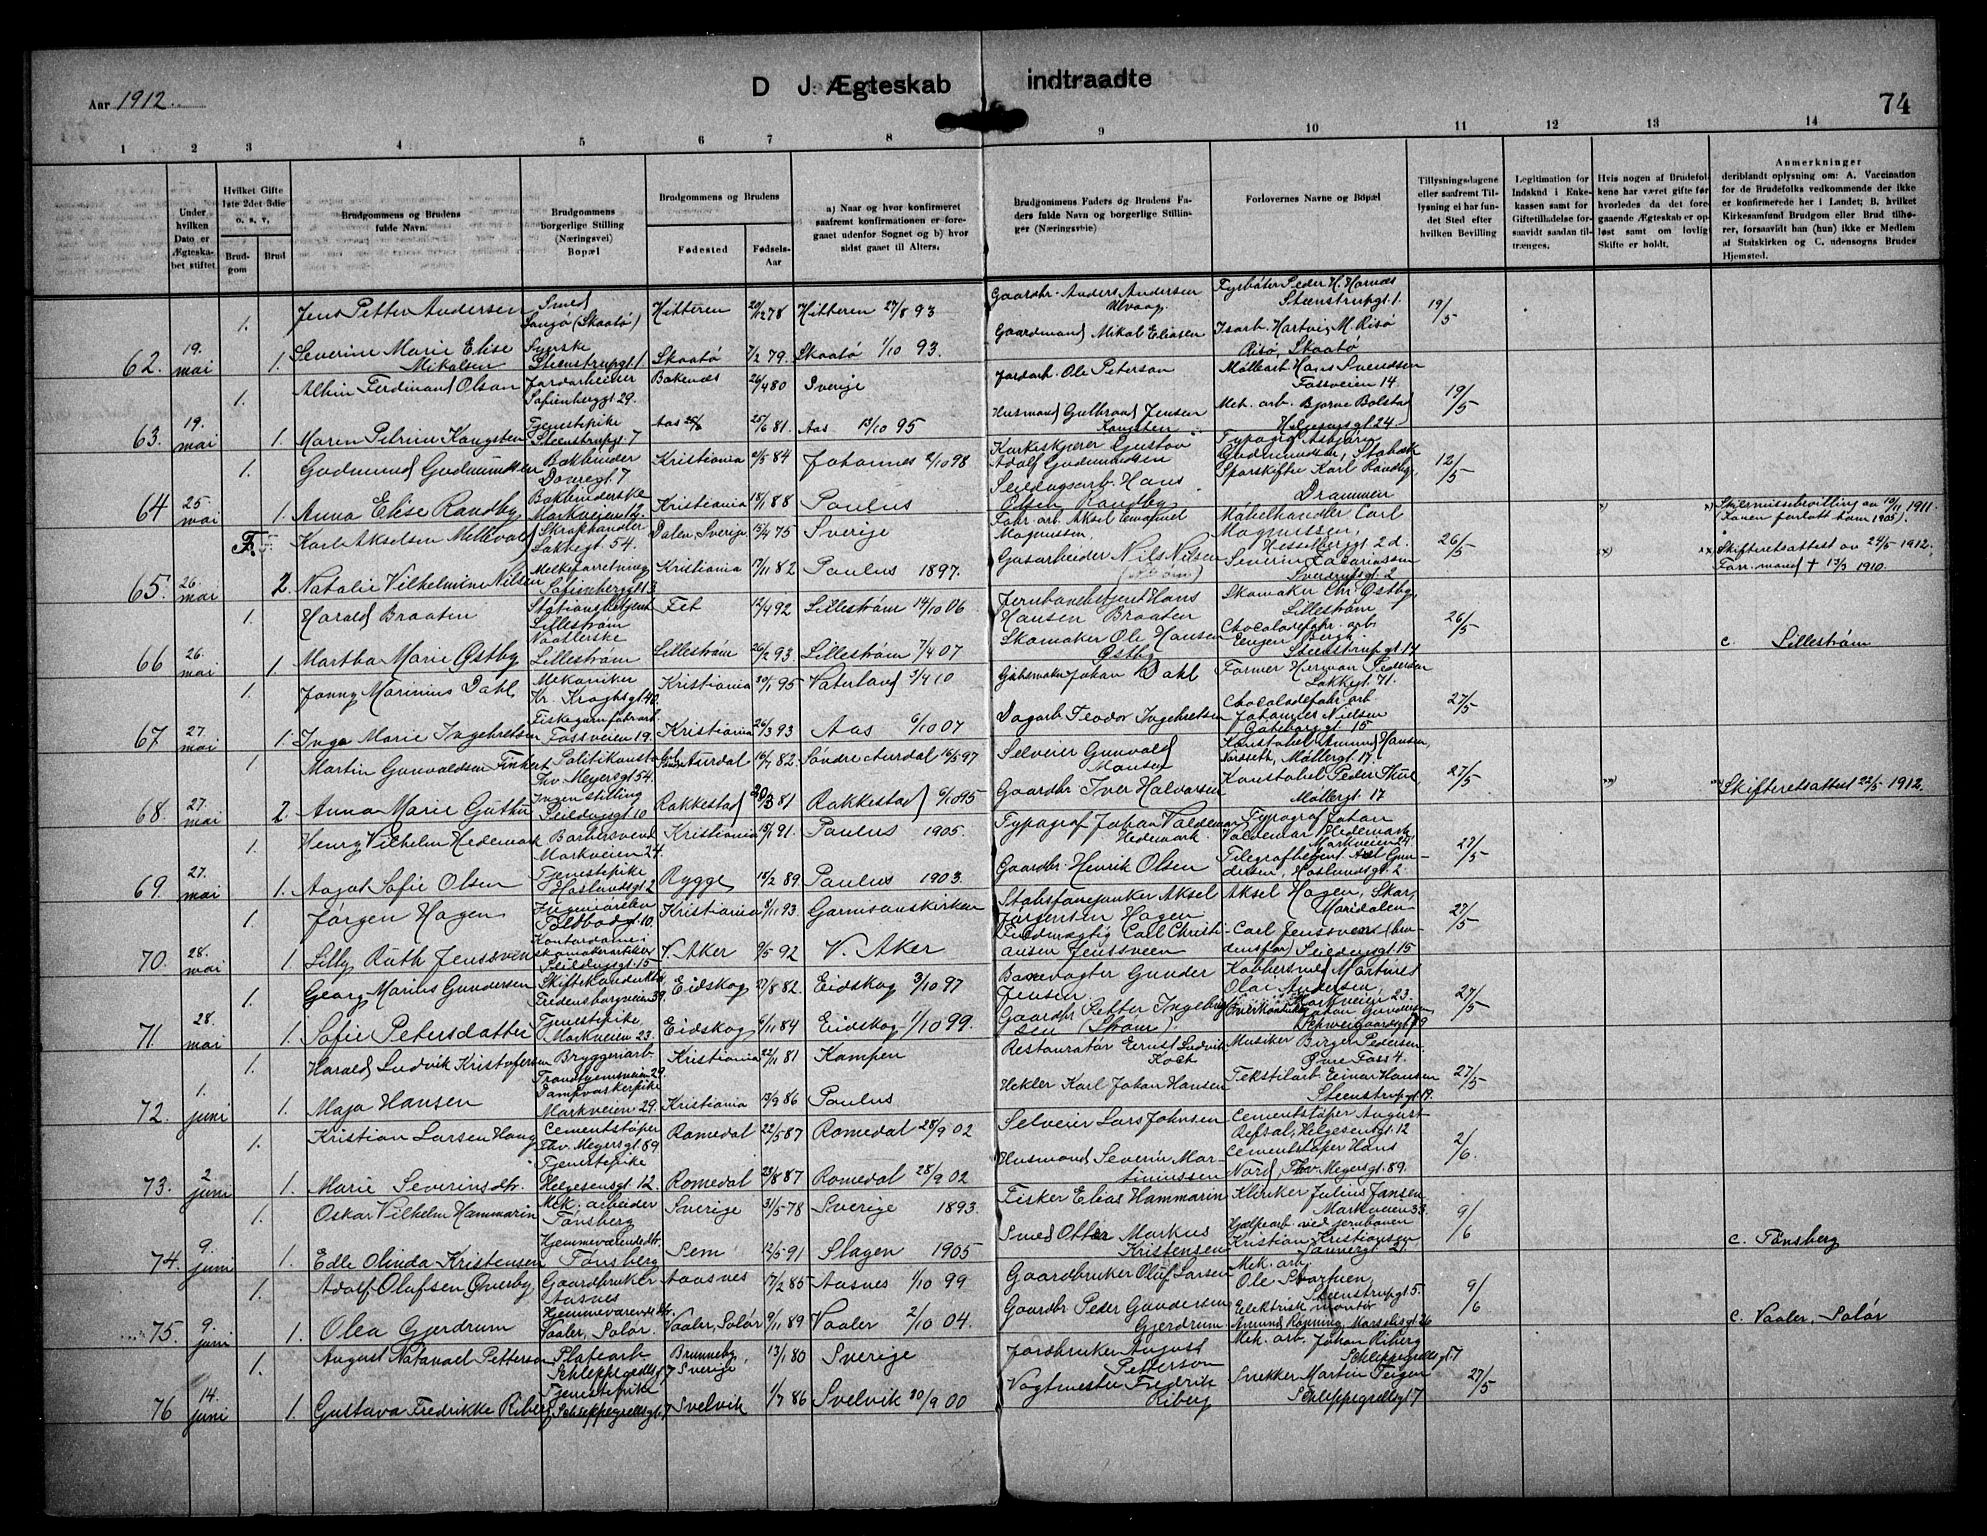 Aar 1912.
D. J. Ægteskab indtraadte
74
1 2 3 4 5 6 7 8 9 10 11 12 13 14
Under hvilken Dato er Ægteskabet stiftet
Hvilket Gifte 1ste 2det 3die o. s. v,
Brudgom
Brud
Brudgommens og Brudens fulde Navn.
Brudgommens borgerlige Stilling (Næringsvei) Bopæl
Brudgommens og Brudens
Fødested
Fødsels-Aar
a) Naar og hvor konfirmeret saafremt konfirmationen er foregaaet udenfor Sognet og b) hvor sidst gaaet til Alters.
Brudgommens Faders og Brudens Faders fulde Navn og borgerlige Stillinger (Næringsveie)
Forlovernes Navne og Bopæl
Tillysningsdagene eller saafremt Tillysning ei har fundet Sted efter hvilken Bevilling
Legitimation for Indskud i Enkekassen samt for Giftetilladelse forsaavidt saadan tiltrænges.
Hvis nogen af Brudefolkene har været gifte før hvorledes da det foregaaende Ægteskab er opløst samt om lovlig Skifte er holdt.
Anmerkninger deriblandt oplysning om: A. Vaccination for de Brudefolks vedkommende der ikke er konfirmerede her i Landet; B. hvilket Kirkesamfund Brudgom eller Brud tilhører, forsaavidt han (hun) ikke er Medlem af Statskirken og C. udensogns Brudes Hjemsted.
1. Jens Petter Andersen Smed Sangø (Skaatø) Hitteren 20/12 78 Hitteren 27/8 93 Gaardbr. Anders Andersen Ulvaag. Fyrbøter Peder H. Harnæs Steenstrupgt. 1. 19/5
62. 19. mai 1. Severine Marie Elise Mikalsen Syerske Steenstrupgt. 1 Skaatø 7/2 79. Skaatø 1/10 93. Gaardmand Mikal Eliasen Isarb. Hartvig M. Risø Risø, Skaatø
1. Albin Ferdinand Olsan Jordarbeider Sofienberggt. 29. Bokenæs 26/4 80 Sverige Jordarb. Ole Peterson Møllearb. Hans Svendsen Fossveien 14. 19/5
63. 19. mai 1. Maren Petrine Kangsten Tjenestepike Steenstrupgt. 7 Aas 25/6 81. Aas 13/10 95 Husmand Gulbrand Jensen Kangsten Mek. arb. Bjarne Bolstad Helgesensgt 24.
1. Gudmund Gudmundsen Bokbinder Dovregt. 7 Kristiania 9/5 84 Johannes 2/10 98 Korkeskjærer Gustav Adolf Gudmundsen Typograf Asbjørn Gudmundsen, Stabæk 12/5
64 25 mai 1. Anna Elise Randby Bokbinderske Markveien 12. Kristiania 18/1 88 Paulus Seildugsarb. Hans Olsen Randby Sporskifter Karl Randby, Drammen
F. Karl Akselsen Mellevold Skraphandler Lakkegt. 54. Dalen, Sverige 13/4 75 Sverige Fabr. arb. Aksel Emanuel Magnussen, Møbelhandler Carl Magnussen, Hesselberggt 2 d. 26/5 x) x) Skilsmissebevilling av 10/11 1911. Konen forlatt ham 1905).
65. 26. mai 2. Natalie Vilhelmine Nilsen Melkeforretning Sofienberggt 3 Kristiania 17/11 82 Paulus 1897. Gasarbeider Nils Nilsen Severin Zakariassen Sverdrupsgt. 2 xx) xx) Skifteretsattest av 24/5 1912. Forr. mand † 13/3 1910.
1. Harald Braaten Stationsbetjent Lillestrøm Fet 12/4 92 Lillestrøm 14/10 06 Jernbanebetjent Hans Hansen Braaten Skomaker Chr. Østby, Lillestrøm 26/5
66 26. mai 1. Martha Marie Østby Lillestrøm Lillestrøm 26/2 93 Lillestrøm 7/4 07 Skomaker Ole Hansen Østby Chocoladefabr. arb. Jengen Bergh. Steenstrupgt. 14 c. Lillestrøm
1. Jonny Marinius Dahl Mekaniker Kr. Kroghsgt. 40. Kristiania 30/1 95 Vaterland 3/4 10 Gjørtmaker Johan Dahl Former Herman Pedersen Lakkegt. 71. 27/5
67 27. mai 1. Inga Marie Ingebretsen Fiskegarnfabr.arb. Fossveien 19. Kristiania 26/3 93 Aas 6/10 07 Dagarb. Teodor Ingebretsen Chocoladefabr. arb. Johannes Nielsen Gøteborggt 15
1. Martin Gunvaldsen Finhert Politikonst. Thv. Meyersgt 54. Søndre Aurdal 10/7 82. Søndre Aurdal 16/5 97 Selveier Gunvald Monsen Konstabel Amund Hansen, Nordseth, Møllergt. 17. 27/5
68 27. mai 2. Anna Marie Guthu Ingen stilling Seildugsgt 10 Rakkestad 20/3 81 Rakkestad 6/10 95 Gaardbr. Iver Halvorsen Konstabel Peder Thue Møllergt. 17 xx) xx) Skifteretsattest 22/5 1912.
1. Henry Vilhelm Hedemark Barbersvend Markveien 24. Kristiania 13/9 91. Paulus 1905. Typograf Johan Valdemar Hedemark Typograf Johan Valdemar Hedemark Markveien 24. 27/5
69. 27. mai 1. Aagot Sofie Olsen Tjenestepike Haslundsgt. 2 Rygge 18/2 89. Paulus 1903. Gaardbr. Henrik Olsen Telegrafbetjent Axel Gundersen, Haslundsgt. 2.
1. Jørgen Hagen Ingeniørelev Toldbodgt. 10. Kristiania 8/11 93. Garnisonskirken Stabsfanejunker Aksel Jørgensen Hagen Aksel Hagen, Skar, Maridalen 27/5
70. 28. mai 1. Lilly Ruth Jenssveen Seildugsgt. 15 V. Aker 9/5 92 V. Aker Fuldmægtig Carl Christiansen Jenssveen Carl Jenssveen (brudens far) Seildugsgt. 15
1. Georg Marius Gundersen Fredensborgveien 39. Eidskog 27/8 82. Eidskog 3/10 97 Banevogter Gunder Jensen. Kobbersmed Martines Olai Andersen, Markveien 23. 27/5
71. 28. mai 1. Sofie Petersdatter Tjenestepike, Markveien 23. Eidskog 6/11 84 Eidskog 1/10 99. Gaardbr. Petter Ingebrigtsen (Strøm) Schweigaardsgt. 79
1. Harald Ludvik Kristofersen Bryggeriarb. Trondhjemsveien 29. Kristiania 22/1 81 Kampen Restauratør Ernst Ludvik Koch Musiker Birger Pedersen. Øvre Foss 4. 27/5
72. 1. juni 1. Maja Hansen Dampvaskerpike Markveien 29. Kristiania 13/9 86 Paulus Hekler Karl Johan Hansen Tekstilarb. Einar Hansen Steenstrupgt. 19.
1. Kristian Larsen Haug Cementstøper Thv. Meyersgt 89 Romedal 22/5 87 Romedal 28/9 02 Selveier Lars Johnsen Cementstøper August Refsal, Helgesensgt. 12 2/6.
73. 2 juni 1. Marie Severinsdtr. Tjenestepike Helgesensgt. 12. Romedal 23/8 87 Romedal 28/9 02 Husmand Severin Martinussen Cementstøper Hans Nord, Thv. Meyersgt. 89.
1. Oskar Vilhelm Hammarin Mek. arbeider Tønsberg Sverige 31/5 78 Sverige 1893. Fisker Elias Hammarin Kliniker Julius Jansen Markveien 33. 9/6
74. 9. juni 1. Edle Olinda Kristensen Hjemmeværende dtr. Tønsberg Sem 12/5 91 Slagen 1905 Smed Otter Markus Kristensen Hjælpearb. ved jernbanen Kristian Kristiansen Tannergt. 21. c. Tønsberg
1. Adolf Olufsen Øverby Gaardbruker Aasnes Aasnes 17/2 85 Aasnes 1/10 99 Gaardbruker Oluf Larsen Mek. arb. Ole Storhven Steenstrupgt. 5. 9/6
75. 9. juni 1. Olea Gjerdrum Hjemmeværende dtr. Vaaler, Solør. Vaaler, Solør 9/11 89 Vaaler 2/10 04. Gaardbr. Peder Gundersen Gjerdrum Elektrisk montør Amund Rønning, Marselisgt. 26 c. Vaaler, Solør
1. August Natanael Petterson Platearb. Schleppegrellsgt. 7 Brunneby, Sverige 13/1 80 Sverige Jordbruker August Petterson Mek. arb. Johan Riberg Schleppegrellsgt. 7 27/5
76 14. juni 1. Gustava Fredrikke Riberg Tjenestepike Schleppegrellsgt. 7 Svelvik 1/7 86 Svelvik 30/9 00 Vagtmester Fredrik Riberg Snekker Martin Teigen Schleppegrellsgt 7